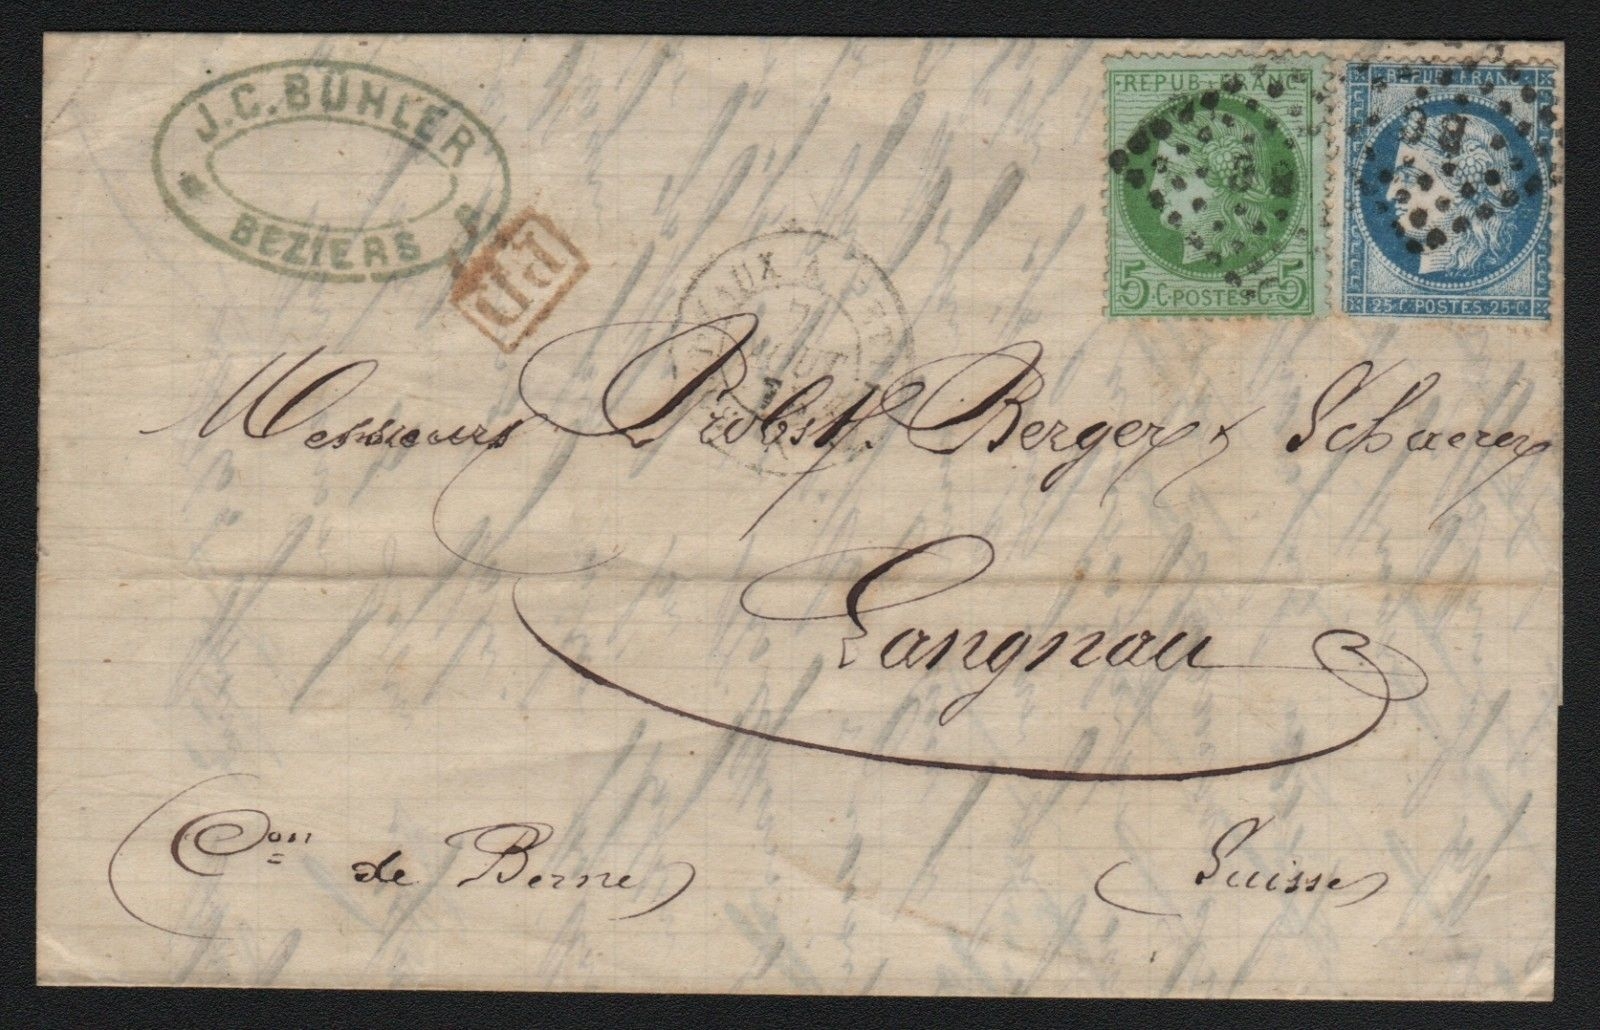 J.C. BÜHLER
BEZIERS
PD
REPUB. FRANC.
5 C. POSTES C. 5
REPUB. FRANC.
25 C. POSTES 25 C.
BC
7
AOUT
Messieurs Probst. Berger & Schaerer
Langnau
Con de Berne
(Suisse)